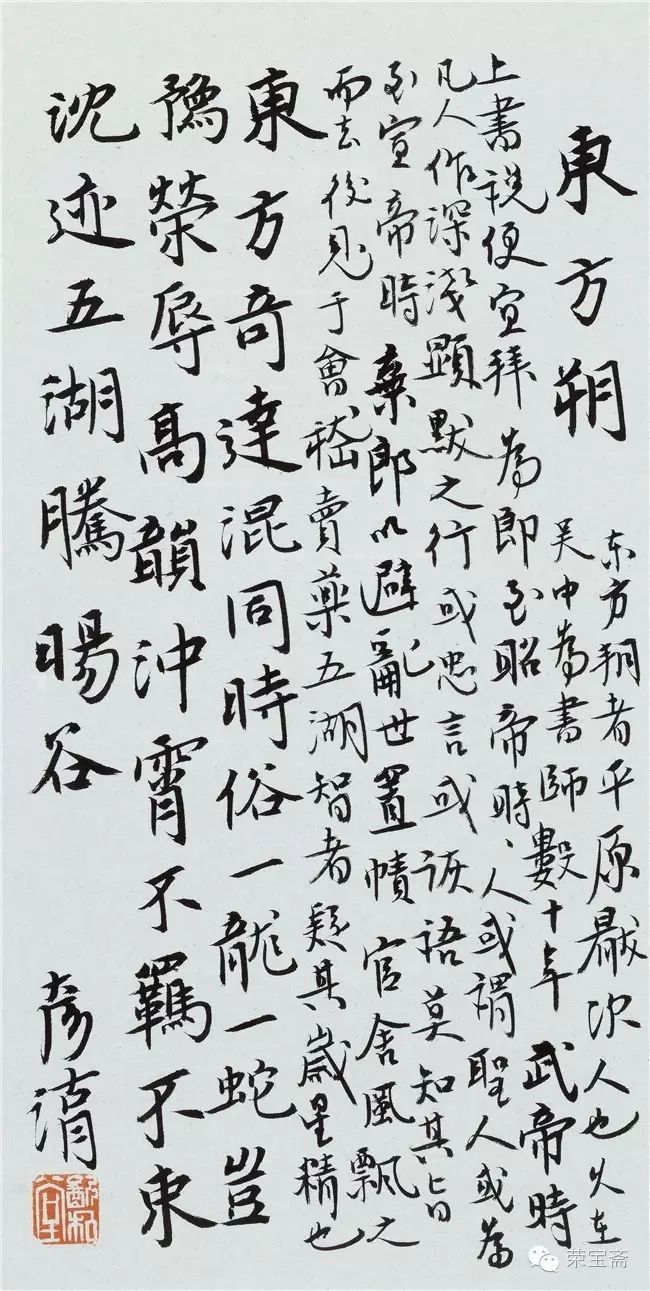 東方朔
东方朔者平原厭次人也久在
吴中為書師數十年武帝時
上書説便宜拜為郎至昭帝時、人或謂聖人或為
凡人作深淺顯默之行或忠言或詼語莫知其旨
至宣帝時棄郎以避亂世置幘官舍風飄之
而去後見于會稽賣藥五湖智者疑其歲星精也
東方奇達混同時俗一龍一蛇豈
豫榮辱高韻沖霄不羈不束
沈迹五湖騰暘谷
彦
荣宝斋